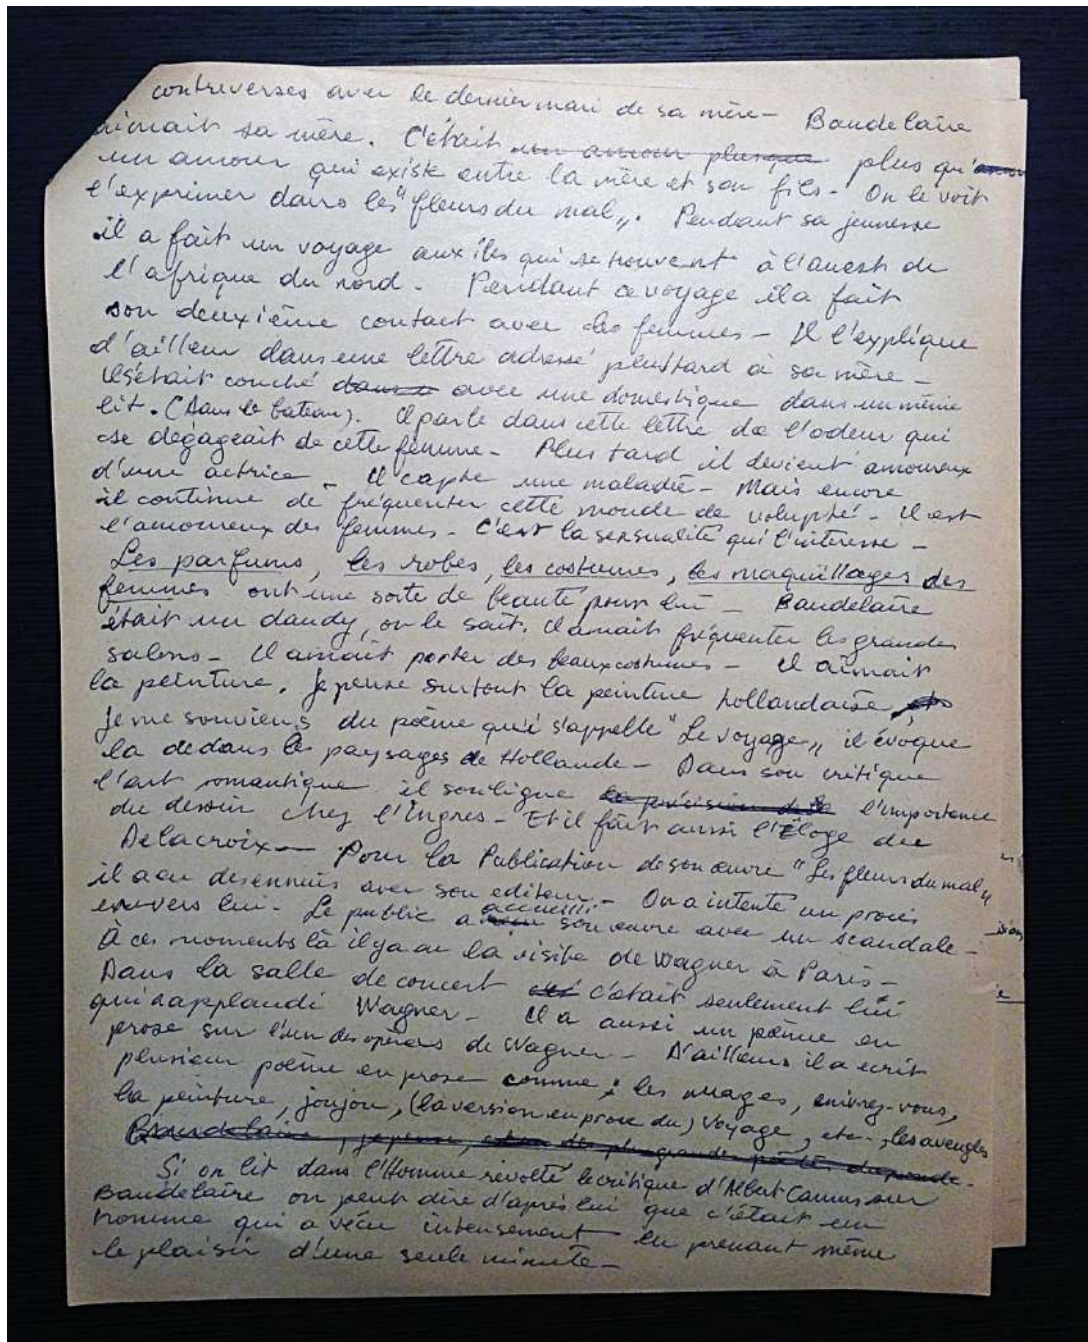 contreverses avec le dernier mari de sa mère - Baudelaire
aimait sa mère. C'était un amour plusque plus qu'
un amour qui existe entre la mère et son fils - On le voit
l'exprimer dans les "fleurs du mal„. Pendant sa jeunesse
il a fait un voyage aux îles qui se trouvent à l'ouest de
l'afrique du nord - Pendant ce voyage il a fait
son deuxième contact avec des femmes - Il l'explique
d'ailleur dans une lettre adressé plustard à sa mère -
Il s'était couché dans avec une domestique dans un même
lit. (Dans le bateau). Il parle dans cette lettre de l'odeur qui
se dégageait de cette femme - Plus tard il devient amoureux
d'une actrice - Il capte une maladie - Mais encore
il continue de fréquenter cette monde de volupté - Il est
l'amoureux des femmes - C'est la sensualité qui l'intéresse -
Les parfums, les robes, les costumes, les maquillages des
femmes ont une sorte de beauté pour lui - Baudelaire
était un dandy, on le sait. Il aimait fréquenter les grandes
salons - Il aimait porter des beaux costumes - Il aimait
la peinture. Je pense surtout la peinture hollandaise
Je me souviens du poème qui s'appelle "Le voyage„ il évoque
la dedans les paysages de Hollande - Dans son critique
l'art romantique il souligne la précision de l'importance
du dessin chez l'Ingres - Et il fait aussi l'Éloge du
Delacroix - Pour la Publication de son œuvre "Les fleurs du mal„
il a eu des ennuis avec son editeur - On a intenté un procès
envers lui - Le public a accueilli son œuvre avec un scandale -
À ces moments là il y a eu la visite de Wagner à Paris -
Dans la salle de concert c'était seulement lui
qui a applaudi Wagner - Il a aussi un poème en
prose sur l'un des opéras de Wagner - D'ailleurs il a ecrit
plusieur poème en prose comme ; les nuages, enivrez-vous,
la peinture, joujou, (la version en prose du) Voyage, etc-, les aveugles
Baudelaire, je pense, des plus grandes poètes du monde -
Si on lit dans l'Homme révolté le critique d'Albert Camus sur
Baudelaire on peut dire d'après lui que c'était un
homme qui a vécu intensement en prenant même
le plaisir d'une seule minute -